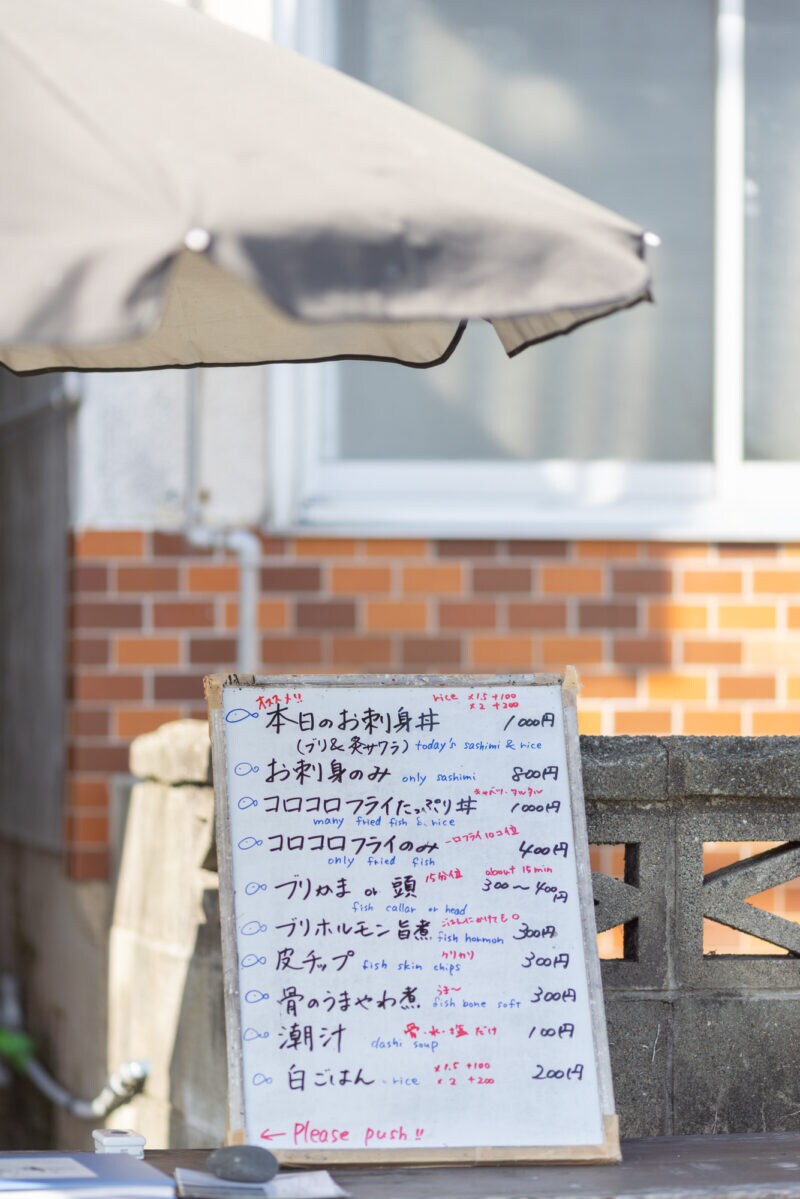 オススメ!! rice ×1.5 +100
×2 +200
本日のお刺身丼 1000円
(ブリ&炙サワラ) today's sashimi & rice
お刺身のみ only sashimi 800円
キャベツ・タルタル
コロコロフライたっぷり丼 1000円
many fried fish & rice
コロコロフライのみ 一口フライ10コ位 400円
only fried fish
ブリかま or 頭 15分位 about 15 min 300〜400円
fish callar or head
ごはんにかけても○
ブリホルモン旨煮 fish hormon 300円
皮チップ カリカリ 300円
fish skin chips
骨のうまやわ煮 うま〜 300円
fish bone soft
潮汁 骨・水・塩 だけ 100円
dashi soup
白ごはん rice ×1.5 +100 200円
×2 +200
← Please push!!